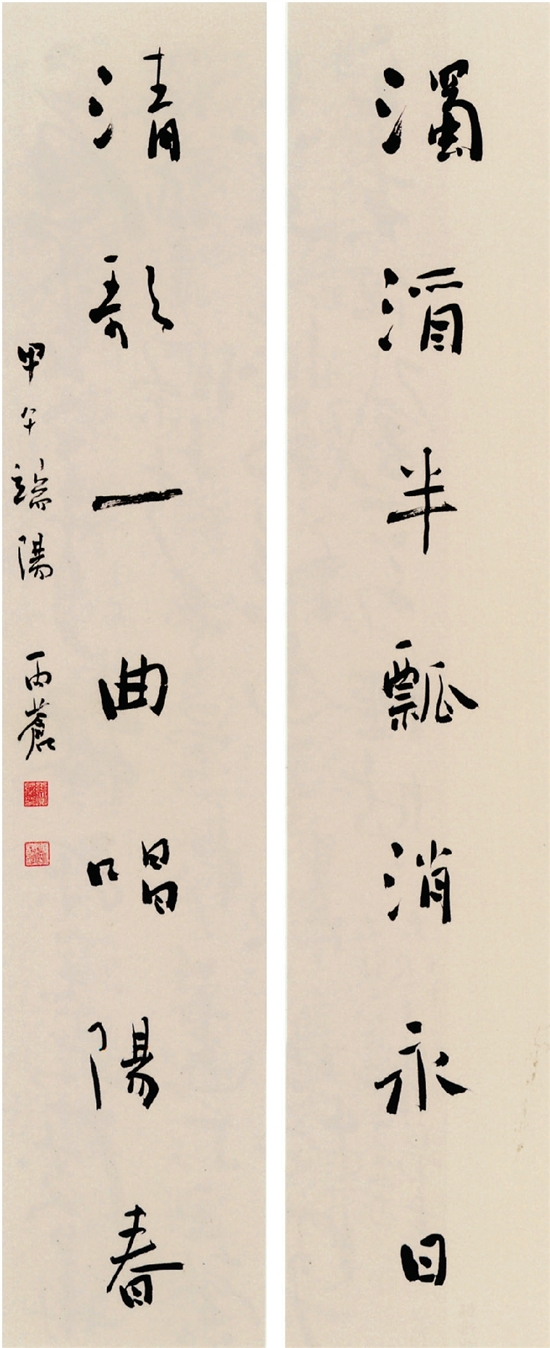 濁酒半瓢消永日
清歌一曲唱陽春
甲午端陽 蒼